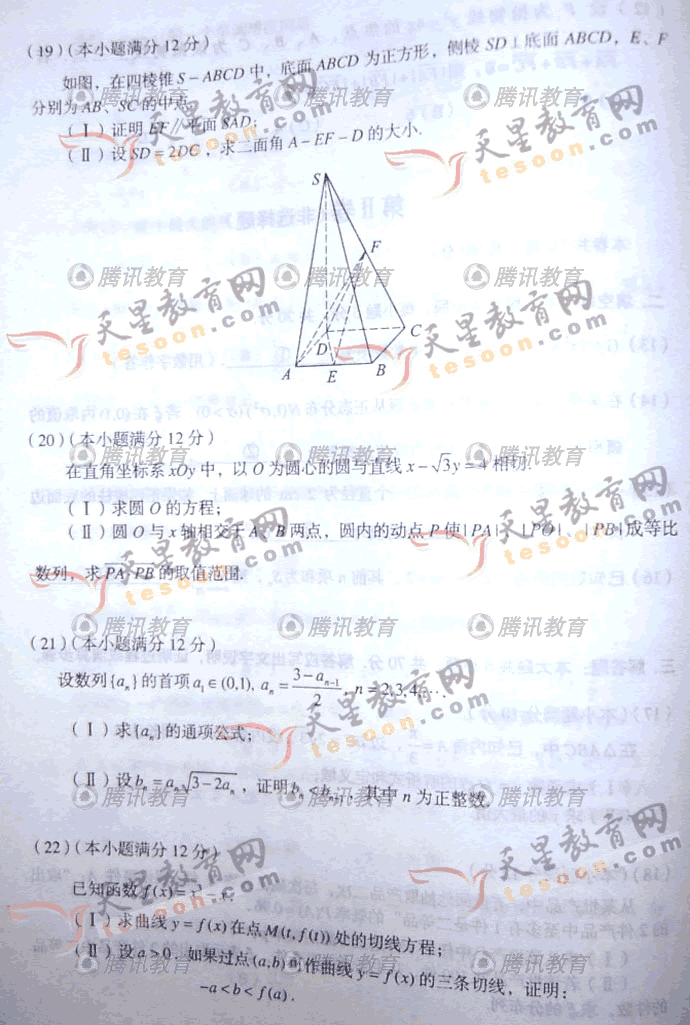 (19)(本小题满分12分)
如图，在四棱锥S－ABCD中，底面ABCD为正方形，侧棱SD⊥底面ABCD，E、F
分别为AB、SC的中点.
(Ⅰ)证明EF∥平面SAD；
(Ⅱ)设SD=2DC，求二面角A－EF－D的大小.
S
F
D
C
A
E
B
(20)(本小题满分12分)
在直角坐标系xOy中，以O为圆心的圆与直线x－√3y=4相切.
(Ⅰ)求圆O的方程；
(Ⅱ)圆O与x轴相交于A、B两点，圆内的动点P使|PA|、|PO|、|PB|成等比
数列，求PA·PB的取值范围.
(21)(本小题满分12分)
设数列{aₙ}的首项a₁∈(0,1), aₙ=(3−aₙ₋₁)/2, n=2,3,4,….
(Ⅰ)求{aₙ}的通项公式；
(Ⅱ)设bₙ=aₙ√(3−2aₙ)，证明bₙ<bₙ₊₁，其中n为正整数.
(22)(本小题满分12分)
已知函数f(x)=
(Ⅰ)求曲线y=f(x)在点M(t, f(t))处的切线方程；
(Ⅱ)设a>0. 如果过点(a,b)可作曲线y=f(x)的三条切线，证明：
-a<b<f(a).
腾讯教育
天星教育网
tesoon.com